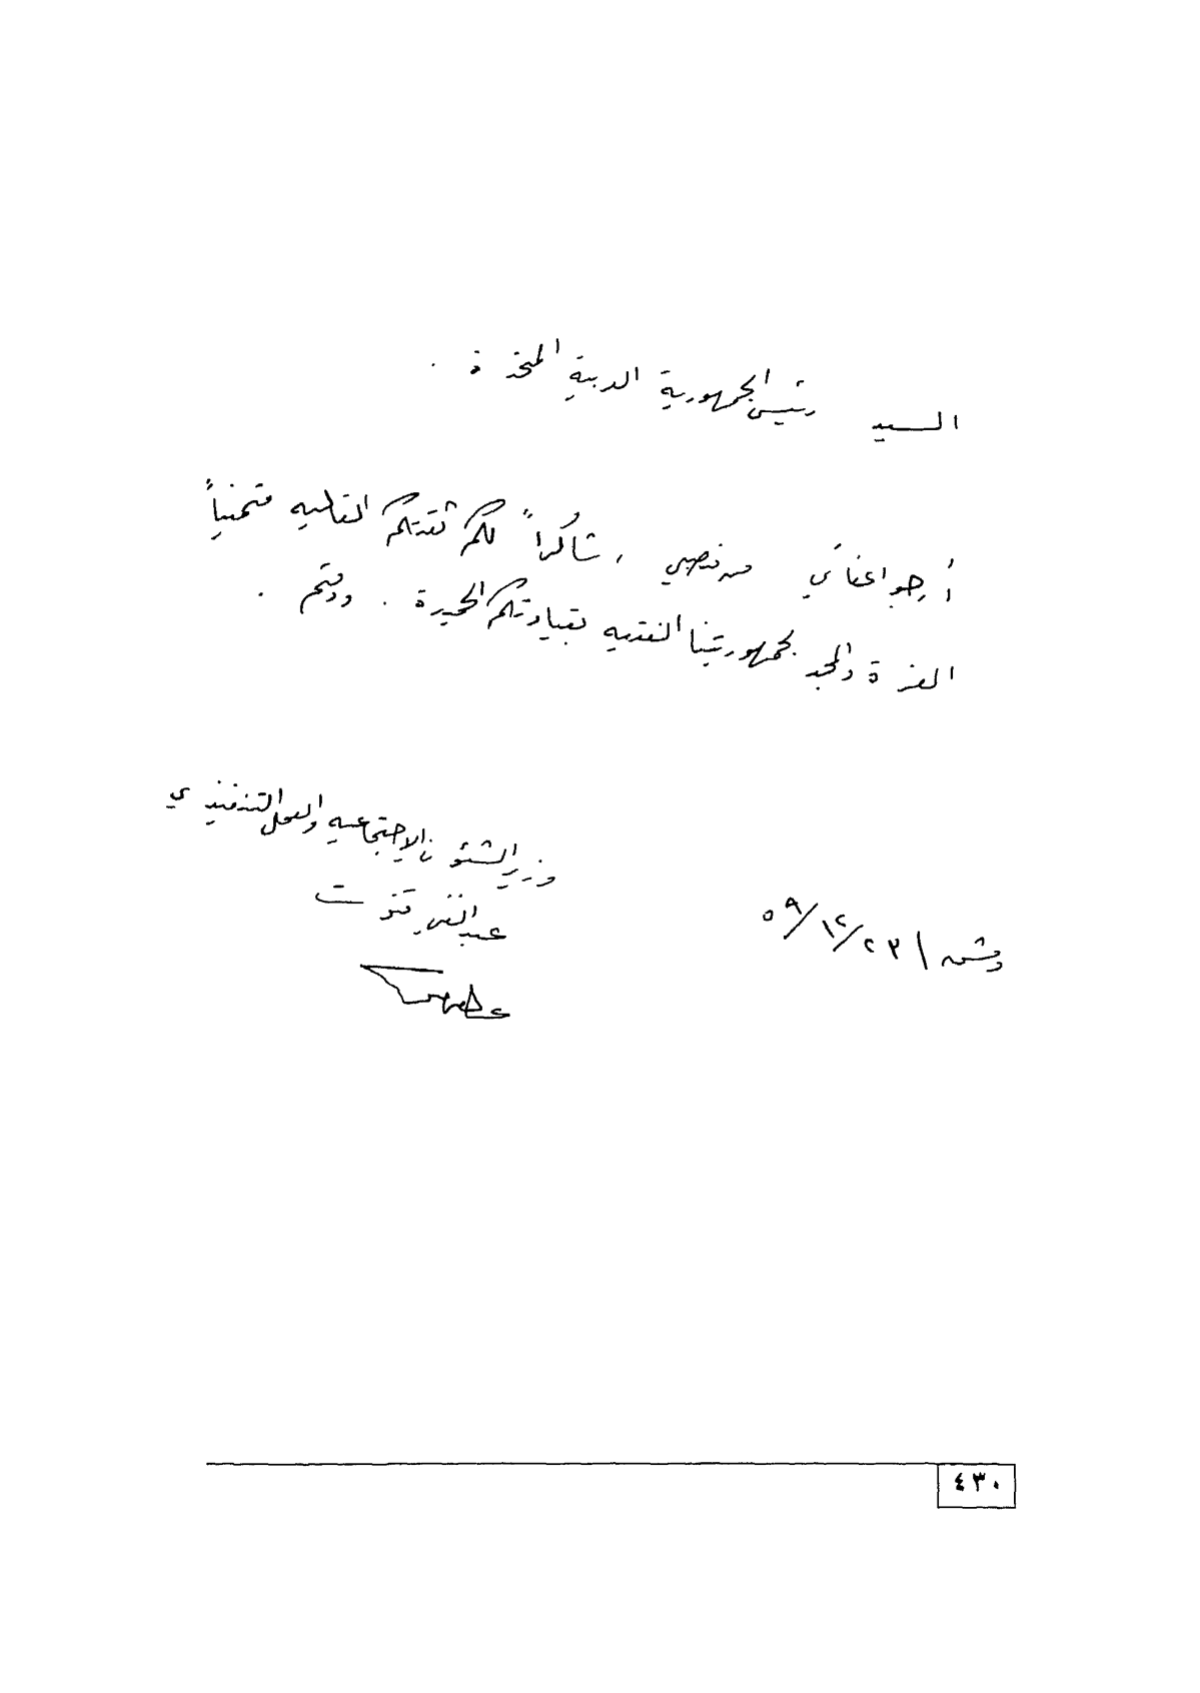 السيد رئيس الجمهورية العربية المتحدة .
أرجو اعفائي من منصبي ، شاكراً لكم ثقتكم الغاليه متمنياً
العزة والمجد لجمهوريتنا الفتيه بقيادتكم الخيرة . ودمتم .
وزير الشئون الاجتماعيه والعمل التنفيذي
عبد الغني قنوت
دمشق / ٢٣/١٢/٥٩
٤٣٠